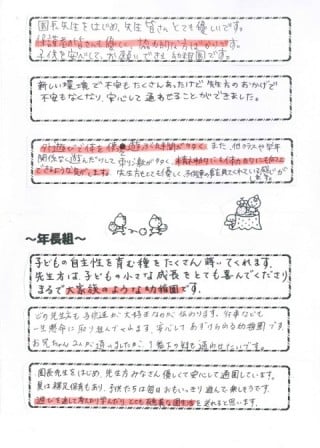 園長先生をはじめ、先生皆さんとても優しいです。
保護者の皆さんも優しい
子供を安心して、お願いできる幼稚園です。
新しい環境で不安もたくさんあったけど先生方のおかげで
不安もなくなり、安心して通わせることができました。
外遊びで体を使
また、他クラスや学年
関係なく遊んだりして
精神的にも体力的にも
先生方もとても優しく、
〜年長組〜
子どもの自主性を育む種をたくさん蒔いてくれます。
先生方は、子どもの小さな成長をとても喜んでくださり、
まるで大家族のような幼稚園です。
どの先生方も子供達が大好きなのが伝わります。行事なども
一生懸命に取り組んで
安心してあずけられる幼稚園です。
お兄ちゃん2人が通いましたが、
も通わせたいです。
園長先生をはじめ、先生方みなさん優しくて安心して通園しています。
夏は裸足保育もあり、子供たちは毎日おもいっきり遊んで楽しそうです。
遊びを通して考えたり学んだり とても
園生活を送れると思います。